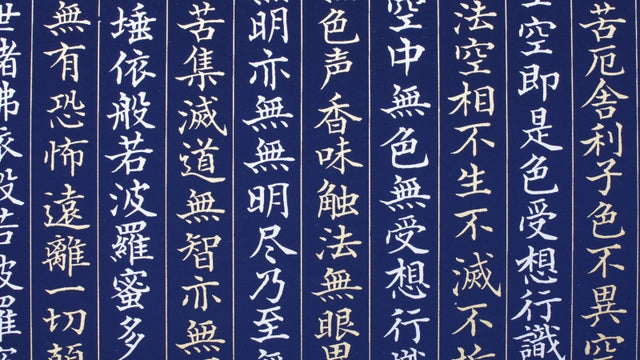 苦厄舎利子色不異空
空即是色受想行識
法空相不生不滅不
空中無色無受想行
色声香味触法無眼界
無明亦無無明尽乃至無
苦集滅道無智亦無
埵依般若波羅蜜多
無有恐怖遠離一切顛
世諸佛依般若波羅